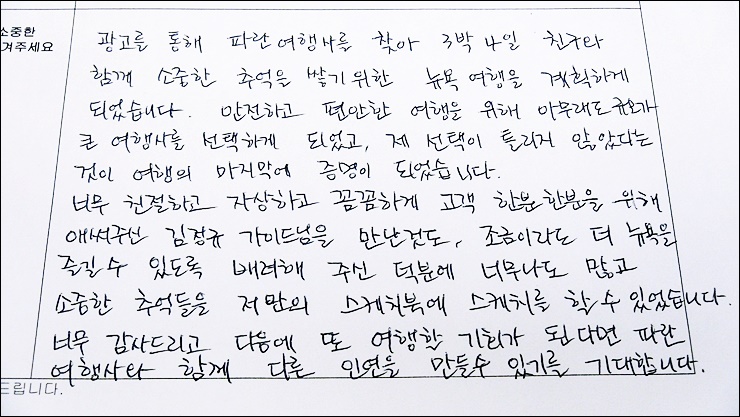 소중한
겨주세요
광고를 통해 파란여행사를 찾아 3박 4일 친구와
함께 소중한 추억을 쌓기위한 뉴욕 여행을 계획하게
되었습니다. 안전하고 편안한 여행을 위해 아무래도 규모가
큰 여행사를 선택하게 되었고, 제 선택이 틀리지 않았다는
것이 여행의 마지막에 증명이 되었습니다.
너무 친절하고 자상하고 꼼꼼하게 고객 한분한분을 위해
애써주신 김정규 가이드님을 만난것도, 조금이라도 더 뉴욕을
즐길수 있도록 배려해 주신 덕분에 너무나도 많고
소중한 추억들을 저만의 스케치북에 스케치를 할수있었습니다.
너무 감사드리고 다음에 또 여행할 기회가 된다면 파란
여행사와 함께 다른 인연을 만들수 있기를 기대합니다.
드립니다.